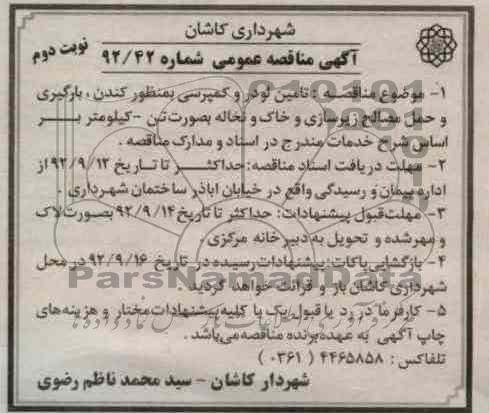 شهرداری کاشان
آگهی مناقصه عمومی شماره ۹۲/۴۲
نوبت دوم
۱- موضوع مناقصه : تامین لودر و کمپرسی بمنظور کندن ، بارگیری
و حمل مصالح زیرسازی و خاک و نخاله بصورت تن -کیلومتر بر
اساس شرح خدمات مندرج در اسناد و مدارک مناقصه .
۲- مهلت دریافت اسناد مناقصه: حداکثر تا تاریخ ۹۲/۹/۱۲ از
اداره پیمان و رسیدگی واقع در خیابان اباذر ساختمان شهرداری .
۳- مهلت قبول پیشنهادات: حداکثر تا تاریخ ۹۲/۹/۱۴ بصورت لاک
و مهر شده و تحویل به دبیرخانه مرکزی .
۴- بازگشایی پاکات: پیشنهادات رسیده در تاریخ ۹۲/۹/۱۶ در محل
شهرداری کاشان باز و قرائت خواهد گردید
۵- کارفرما در رد یا قبول یک یا کلیه پیشنهادات مختار و هزینه های
چاپ آگهی به عهده برنده مناقصه می باشد .
تلفاکس : ۴۴۶۵۸۵۸ ( ۰۳۶۱ )
شهردار کاشان - سید محمد ناظم رضوی
ParsNamadData